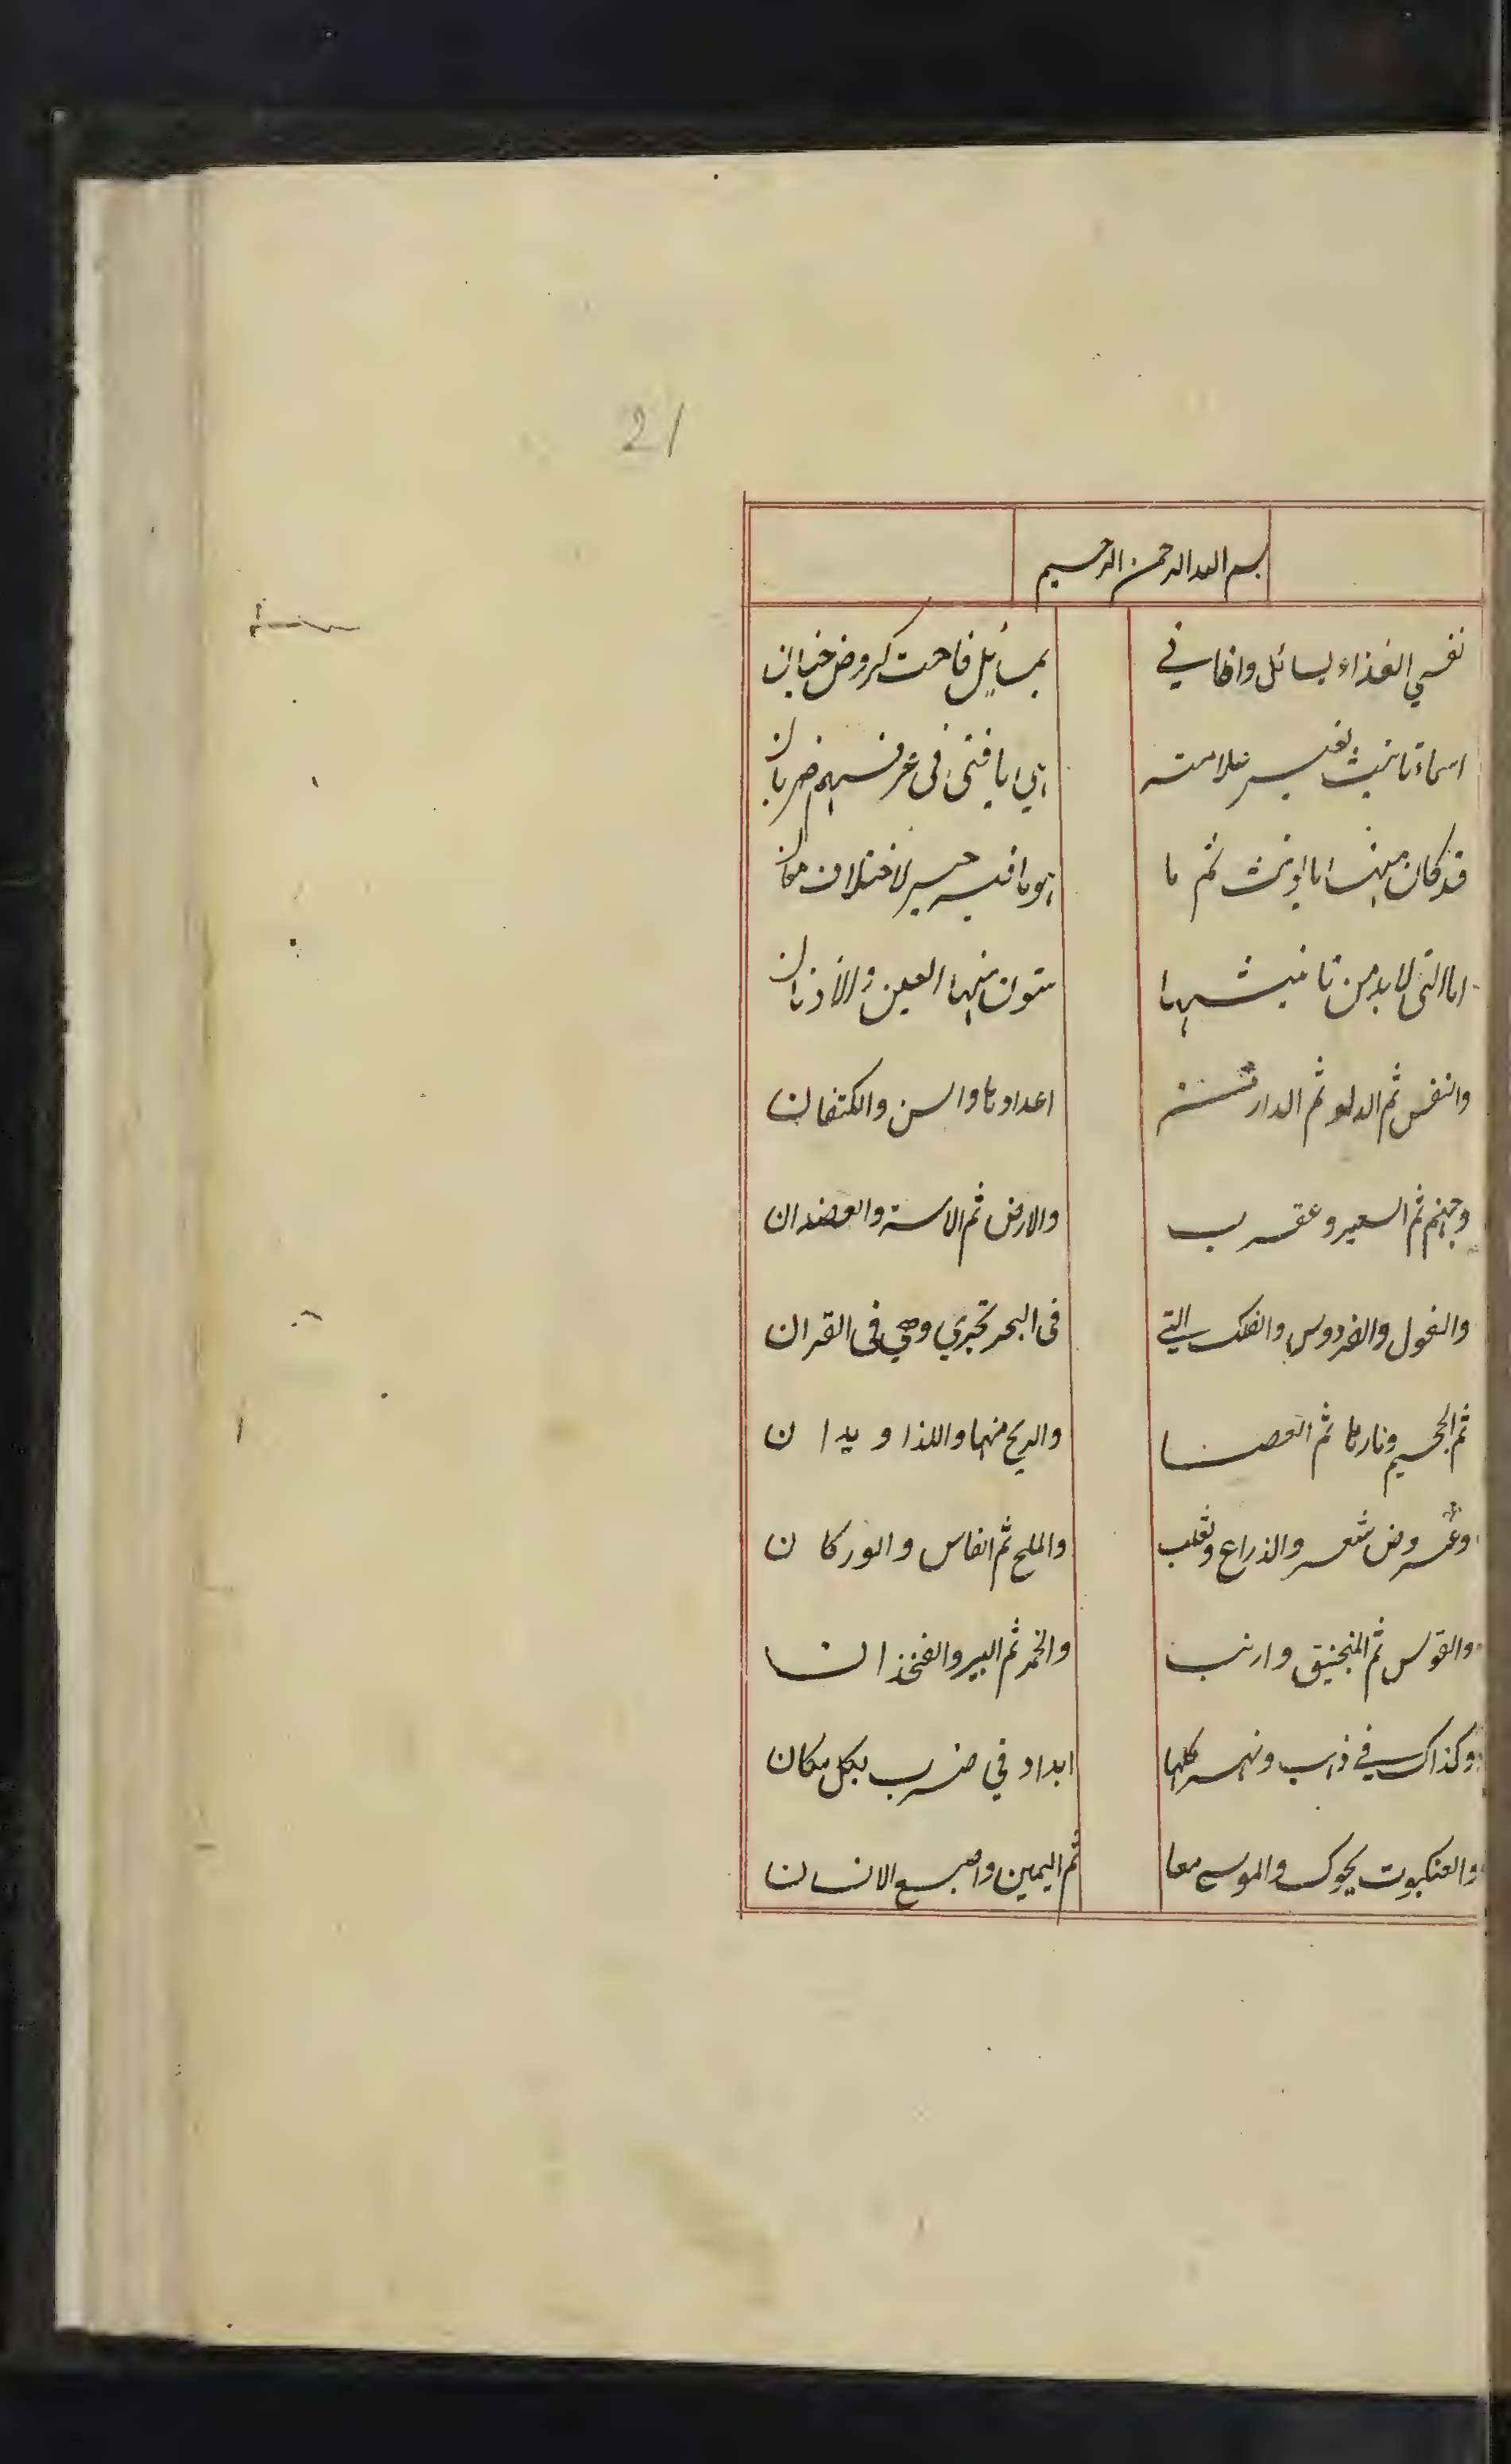 21
بسم الله الرحمن الرحيم
نفسي الغذاء لسائل وافاني بمسائل فاحت كروض جنان
اسماء تانيث بغير علامته هي يا فتى فى عرفهم ضربان
قد كان منها ما يؤنث ثم ما هو ما فيه خير لاختلاف معان
اما التى لابد من تانيثها ستون منها العين والاذنان
والنفس ثم الدلو ثم الدار من اعدادها والسن والكتفان
وجهنم ثم السعير وعقرب والارض ثم الاست والعضدان
والغول والفردوس والفلك التي فى البحر تجري وهي فى القران
ثم الجحيم ونارها ثم العصا والريح منها واللذا ويدان
وعروض شعر والذراع وثعلب والملح ثم الفاس والوركان
والقوس ثم المنجنيق وارنب والخمر ثم البير والفخذان
وكذاك في ذهب ونهر كلها ابدا وفي ضرب بكل مكان
والعنكبوت يحوك والموسى معا ثم اليمين واصبع الانسان